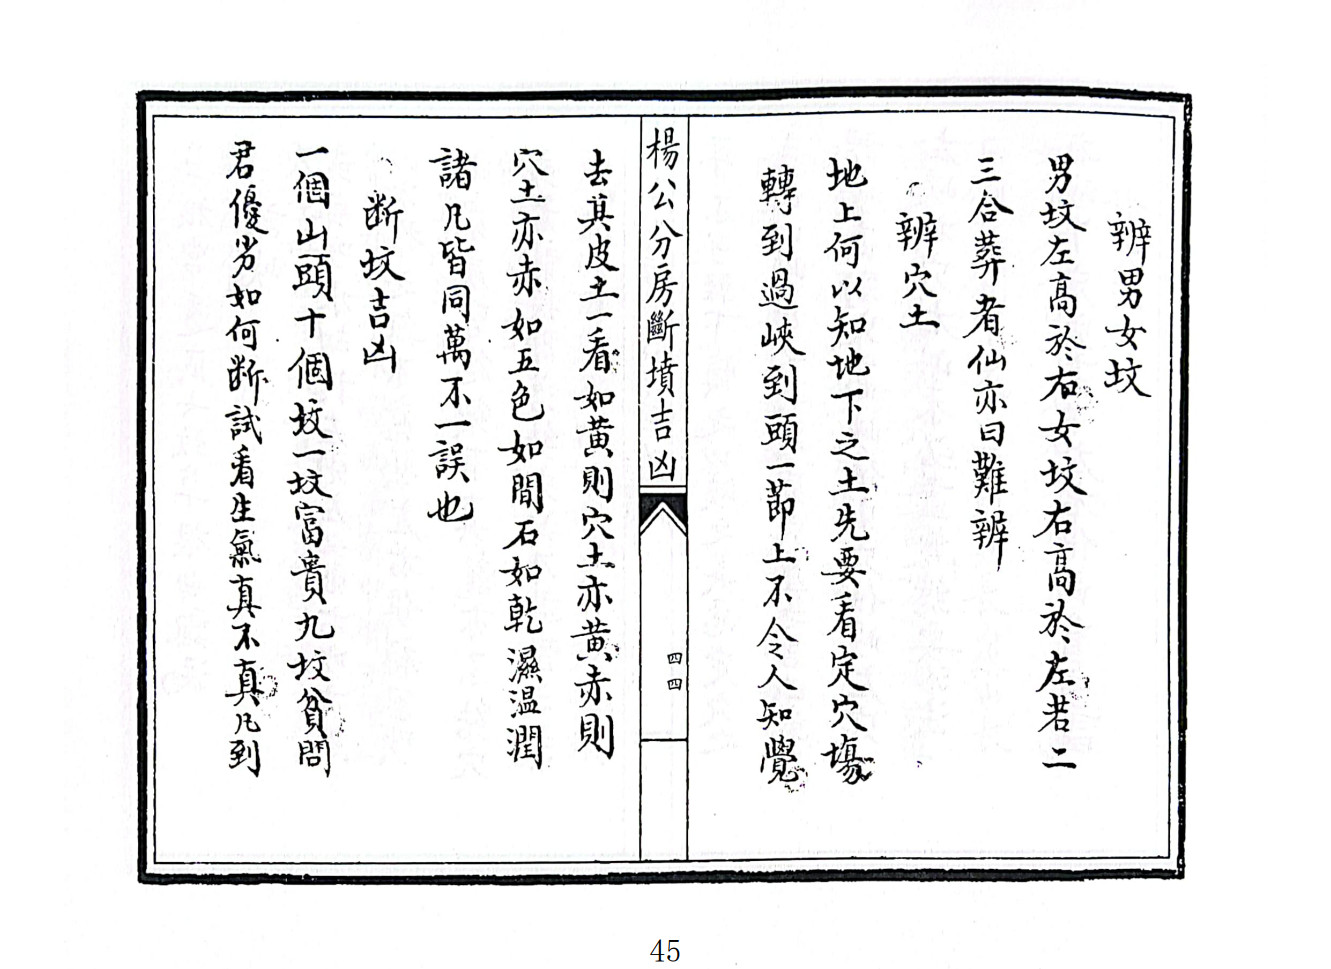 辨男女坟
男坟左高於右女坟右高於左若二
三合葬者仙亦曰難辨
辨穴土
地上何以知地下之土先要看定穴塲
轉到過峽到頭一節上不令人知覺
楊公分房斷墳吉凶
四四
去其皮土一看如黄則穴土亦黄赤則
穴土亦赤如五色如間石如乾濕温潤
諸凡皆同萬不一誤也
断坟吉凶
一個山頭十個坟一坟富貴九坟貧問
君優劣如何断試看生氣真不真凡到
45